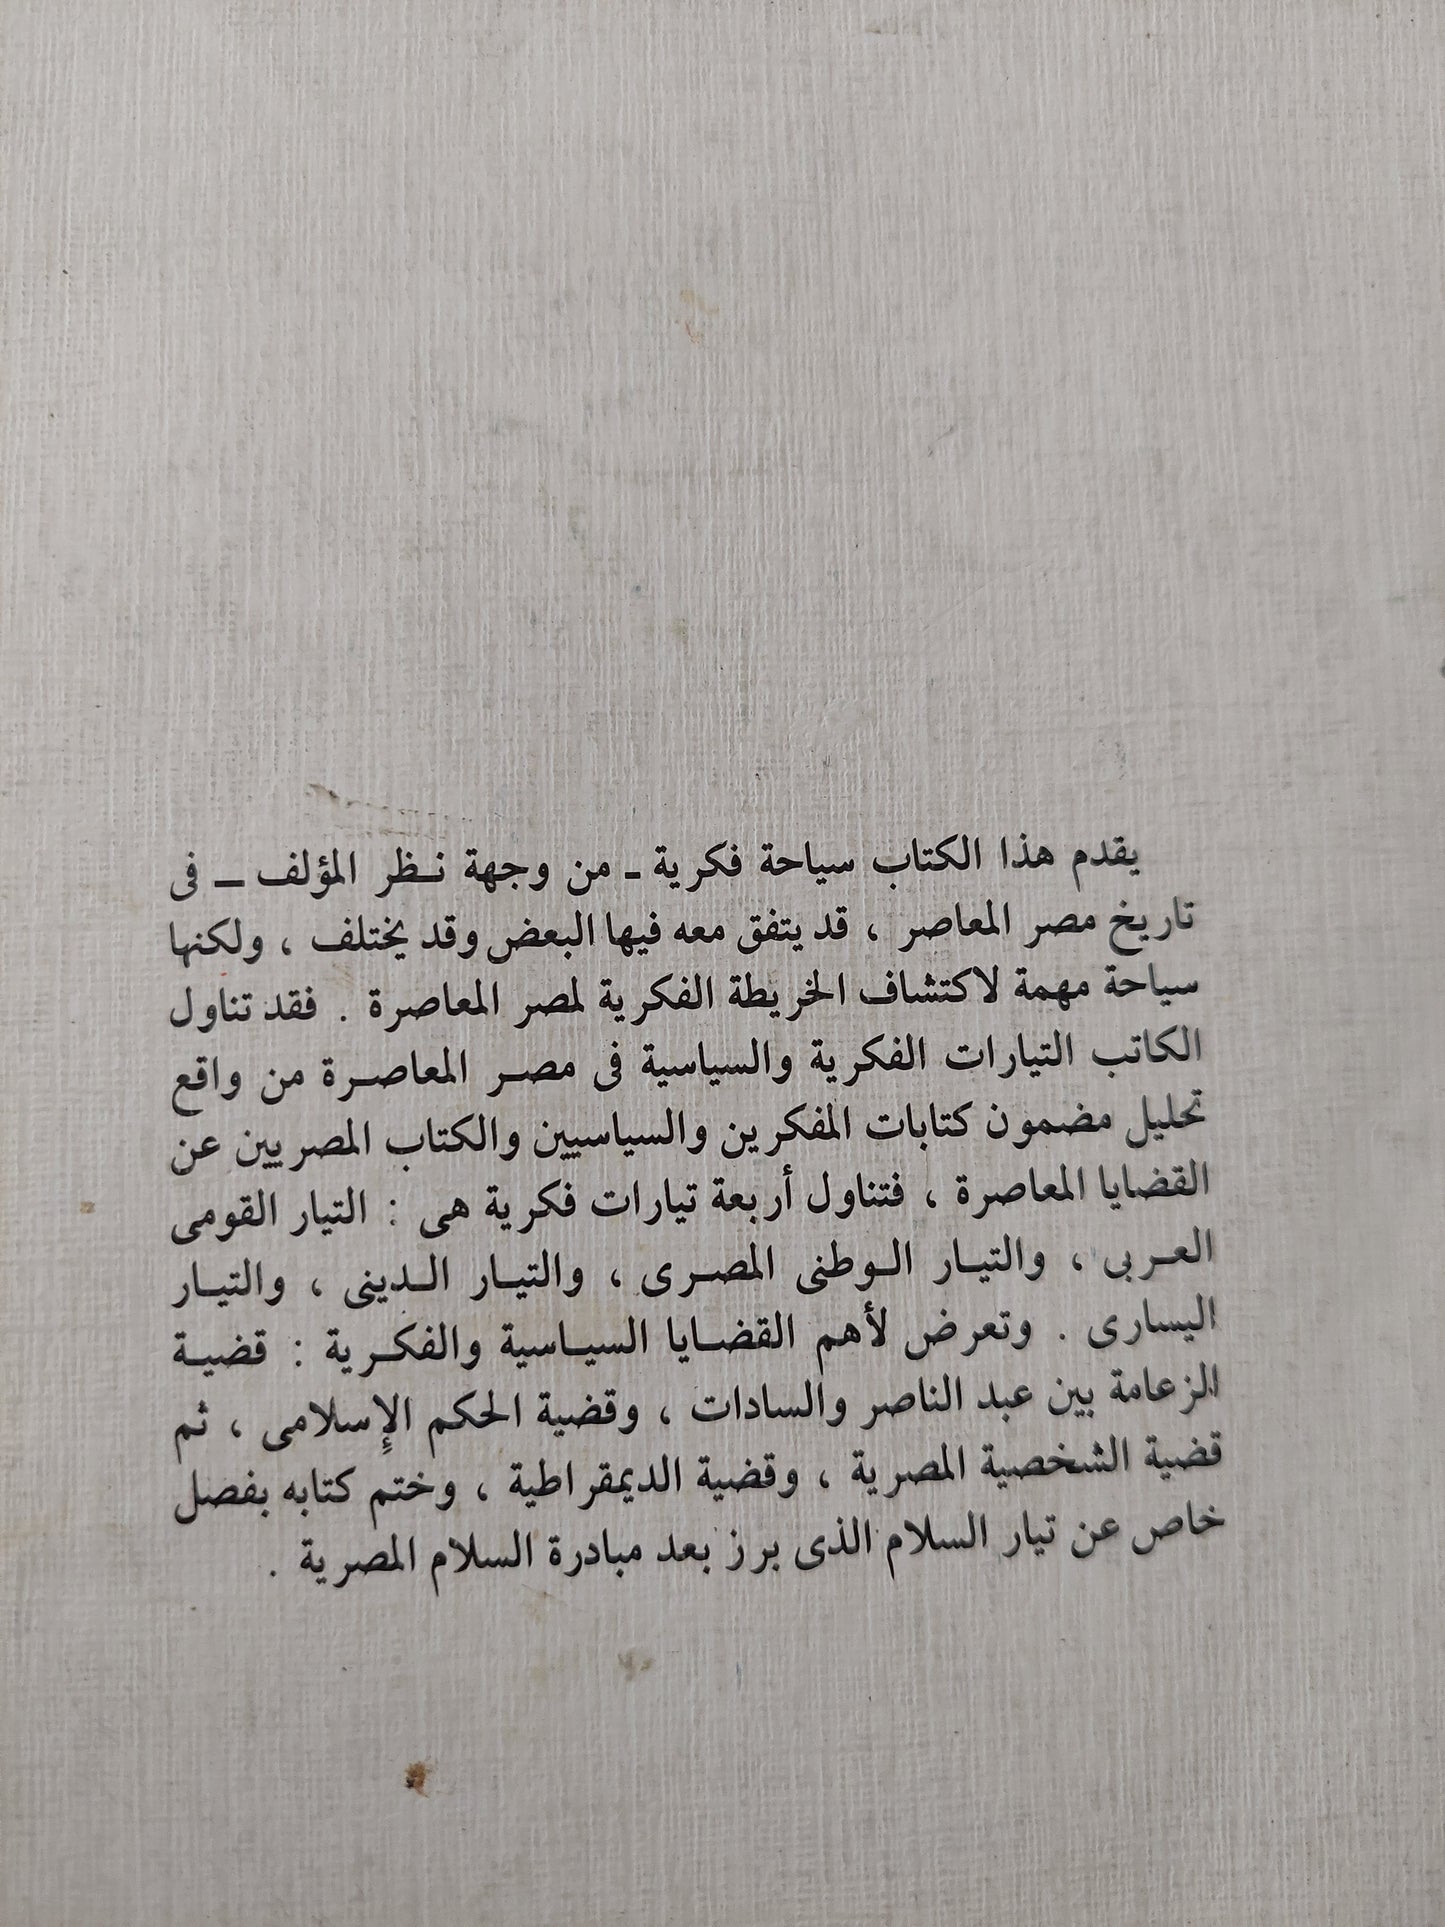 يقدم هذا الكتاب سياحة فكرية ـ من وجهة نـظر المؤلف ــ فى
تاريخ مصر المعاصر ، قد يتفق معه فيها البعض وقد يختلف ، ولكنها
سياحة مهمة لاكتشاف الخريطة الفكرية لمصر المعاصرة . فقد تناول
الكاتب التيارات الفكرية والسياسية فى مصـر المعاصـرة من واقع
تحليل مضمون كتابات المفكرين والسياسيين والكتاب المصريين عن
القضايا المعاصرة ، فتناول أربعة تيارات فكرية هى : التيار القومى
العـربى ، والتيـار الـوطنى المصـرى ، والتيـار الـدينى ، والتيـار
اليسارى . وتعرض لأهم القضـايا السيـاسية والفكـرية : قضيـة
الزعامة بين عبد الناصر والسادات ، وقضية الحكم الإسلامى ، ثم
قضية الشخصية المصرية ، وقضية الديمقراطية ، وختم كتابه بفصل
خاص عن تيار السلام الذى برز بعد مبادرة السلام المصرية .